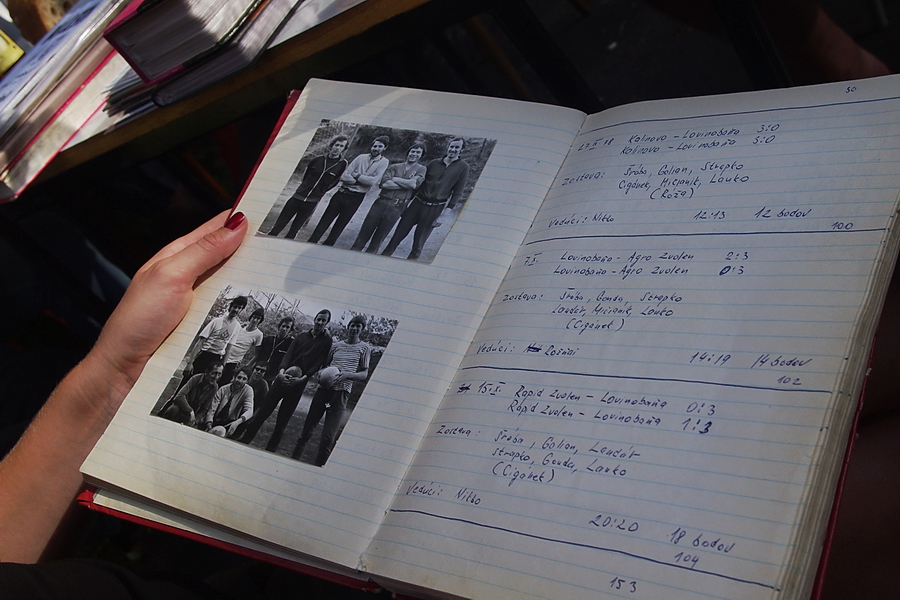 50
23.IX.78 Kalinovo - Lovinobaňa 3:0
Kalinovo - Lovinobaňa 3:0
Zostava: Šróba, Golian, Strapko
Cigánek, Mičianik, Lauko
(Róža)
Vedúci: Nitko 12:13 12 bodov
100
7.X. Lovinobaňa - Agro Zvolen 2:3
Lovinobaňa - Agro Zvolen 0:3
Zostava: Šróba, Gonda, Strapko
Laudár, Mičianik, Lauko
(Cigánek)
Vedúci: Rožnai 14:19 14 bodov
102
15.X. Rapid Zvolen - Lovinobaňa 0:3
Rapid Zvolen - Lovinobaňa 1:3
Zostava: Šróba, Golian, Laudár
Strapko, Gonda, Lauko
(Cigánek)
Vedúci: Nitko
20:20 18 bodov
104
153